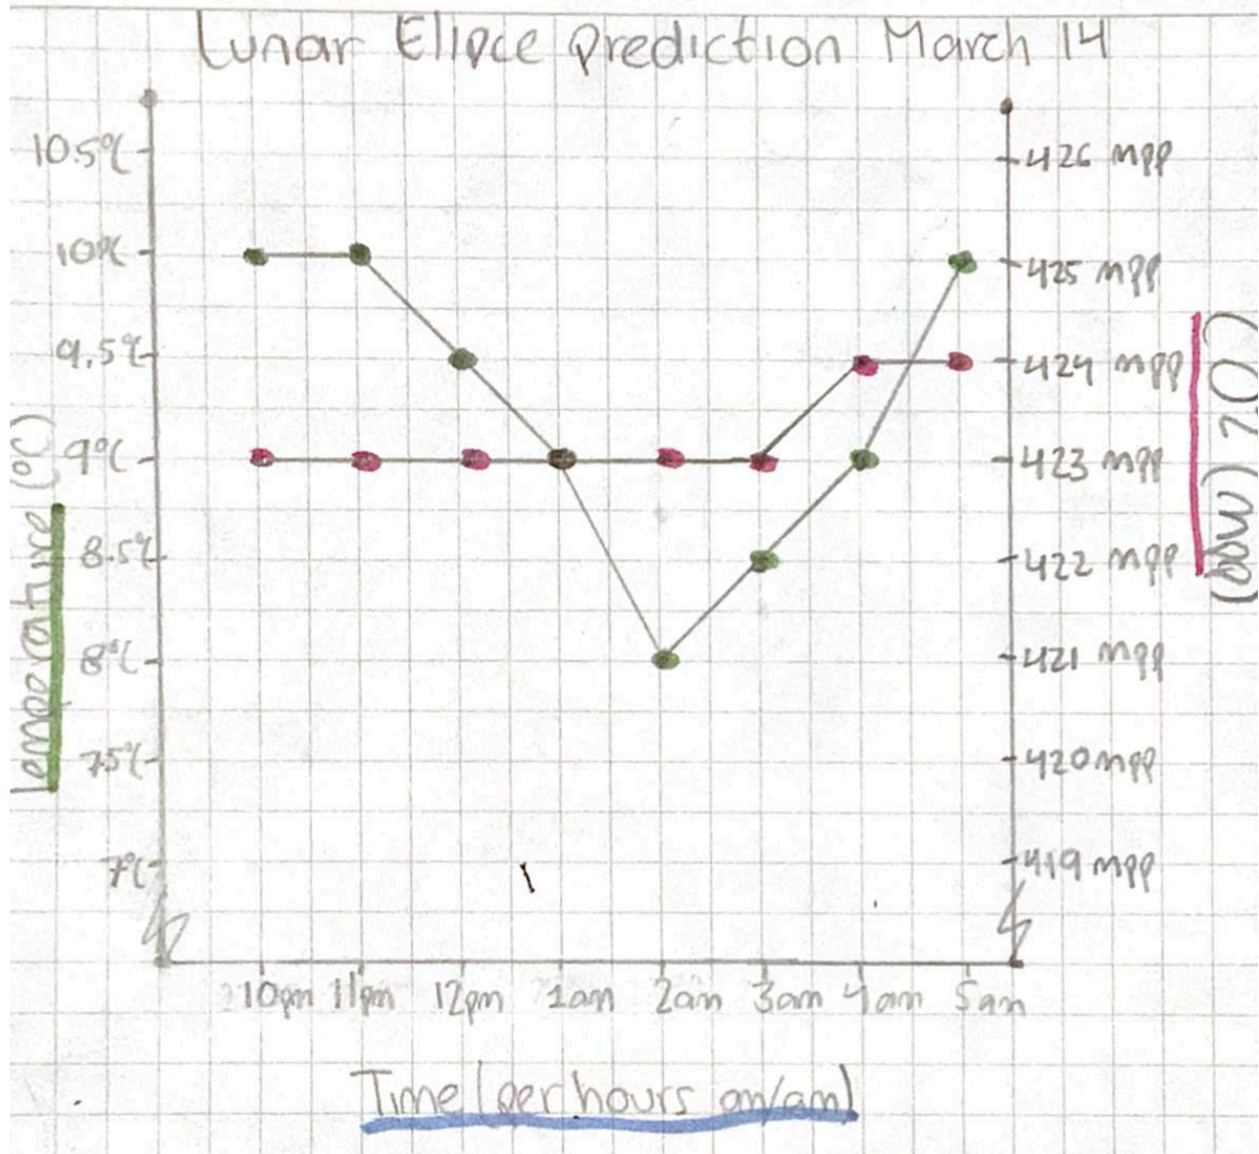 Lunar Elipce prediction March 14
10.5°C
10°C
9.5°C
9°C
8.5°C
8°C
7.5°C
7°C
Temperature (°C)
426 mpp
425 mpp
424 mpp
423 mpp
422 mpp
421 mpp
420 mpp
419 mpp
CO2 (mpp)
10pm 11pm 12pm 1am 2am 3am 4am 5am
Time (per hours pm/am)